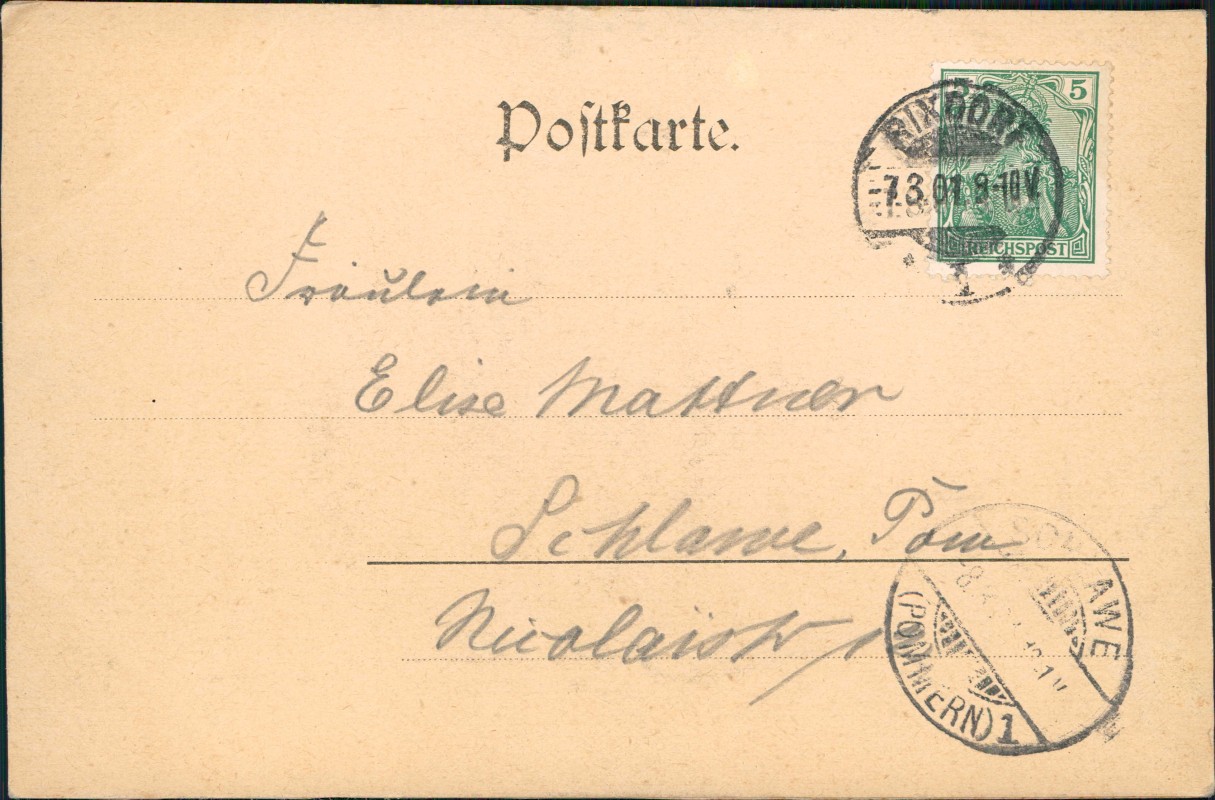 Postkarte.
5
RIXDORF
7.3.01. 8-10 V.
1
REICHSPOST
Fräulein
Elise Mattner
Schlawe, Pom
Nicolaistr 1
SCHLAWE
(POMMERN) 1